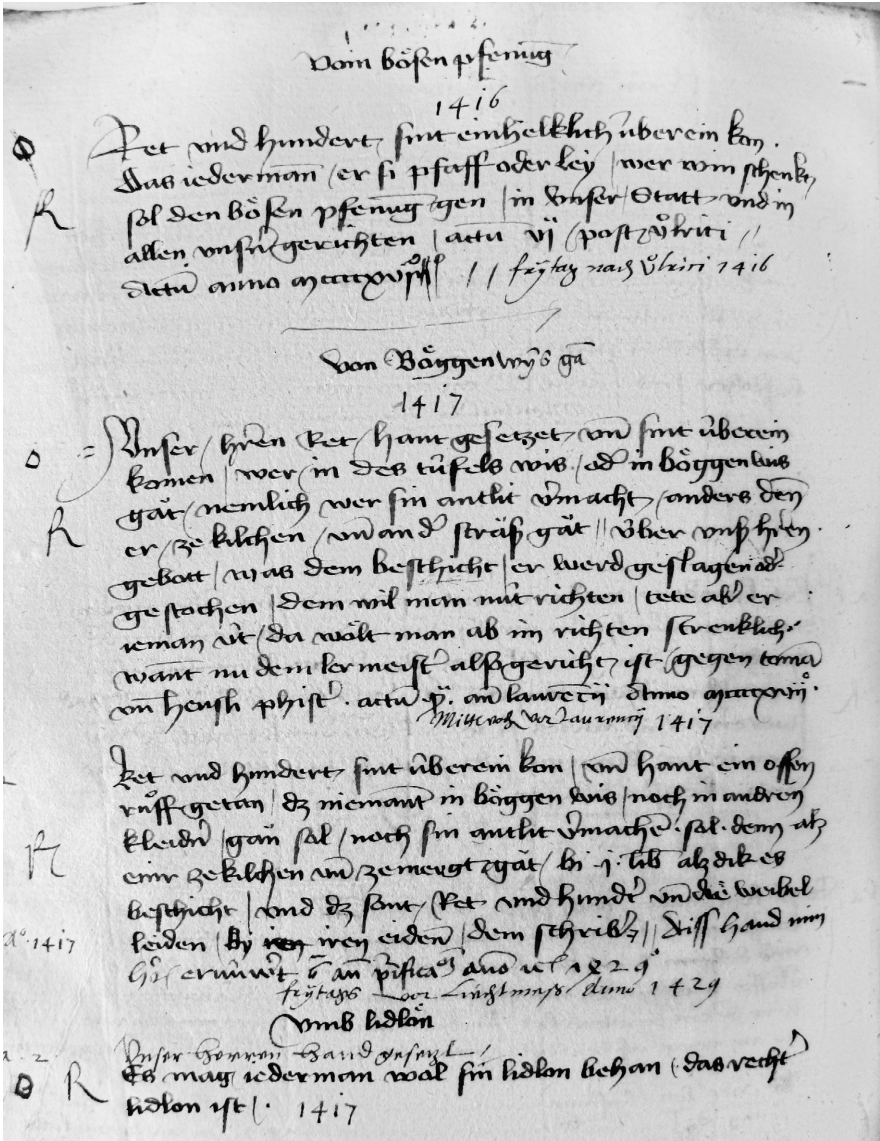 Vom bösen pfenning
1416
Ret und hundert sint einhelklich überein kon.
Das iederman / er si pfaff oder ley / wer win schenkt
sol den bösen pfenning gen / in unser Statt und in
allen unsern gerichten / actu vj post Uolrici //
Actu anno mccccxvj // frytag nach Uolrici 1416
Von Böggenwys gan
1417
Unser / hren Ret / hant gesetzet / un sint überein
komen / wer / in des tüfels wis / od in böggenwis
gat / nemlich wer sin antlit vmacht / anders den
er / ze kilchen / un an d straß gat // über unß hren
gebott / was dem beschicht / er werd geslagen od
gestochen / dem wil man nüt richten / tete ab er
ieman üt / da wölt man ab im richten strenklich
want nu dem lermeist alß gericht ist / gegen toman
un hensli phist . actu an laurencii Anno mccccxvii
Mittwoch vor Laurencij 1417
Ret und hundert sint überein kon / un hant ein offen
ruoff getan / dz niemant in böggen wis / noch in andren
kleidn / gan sol / noch sin antlit vmachen sol denn alz
einr ze kilchen un ze mergt gat / bi j lib alz dik es
beschicht / und dz sont / Ret und hundt un die weibel
leiden / by iren eiden / dem schrib // Diss hand min
hr ernüwrt an purifica ano 1429
frytags vor Liechtmess Anno 1429
a° 1417
Umb lidlon
Unser herren hand gesetzt /
Es mag iederman wol sin lidlon behan / das recht
lidlon ist / . 1417